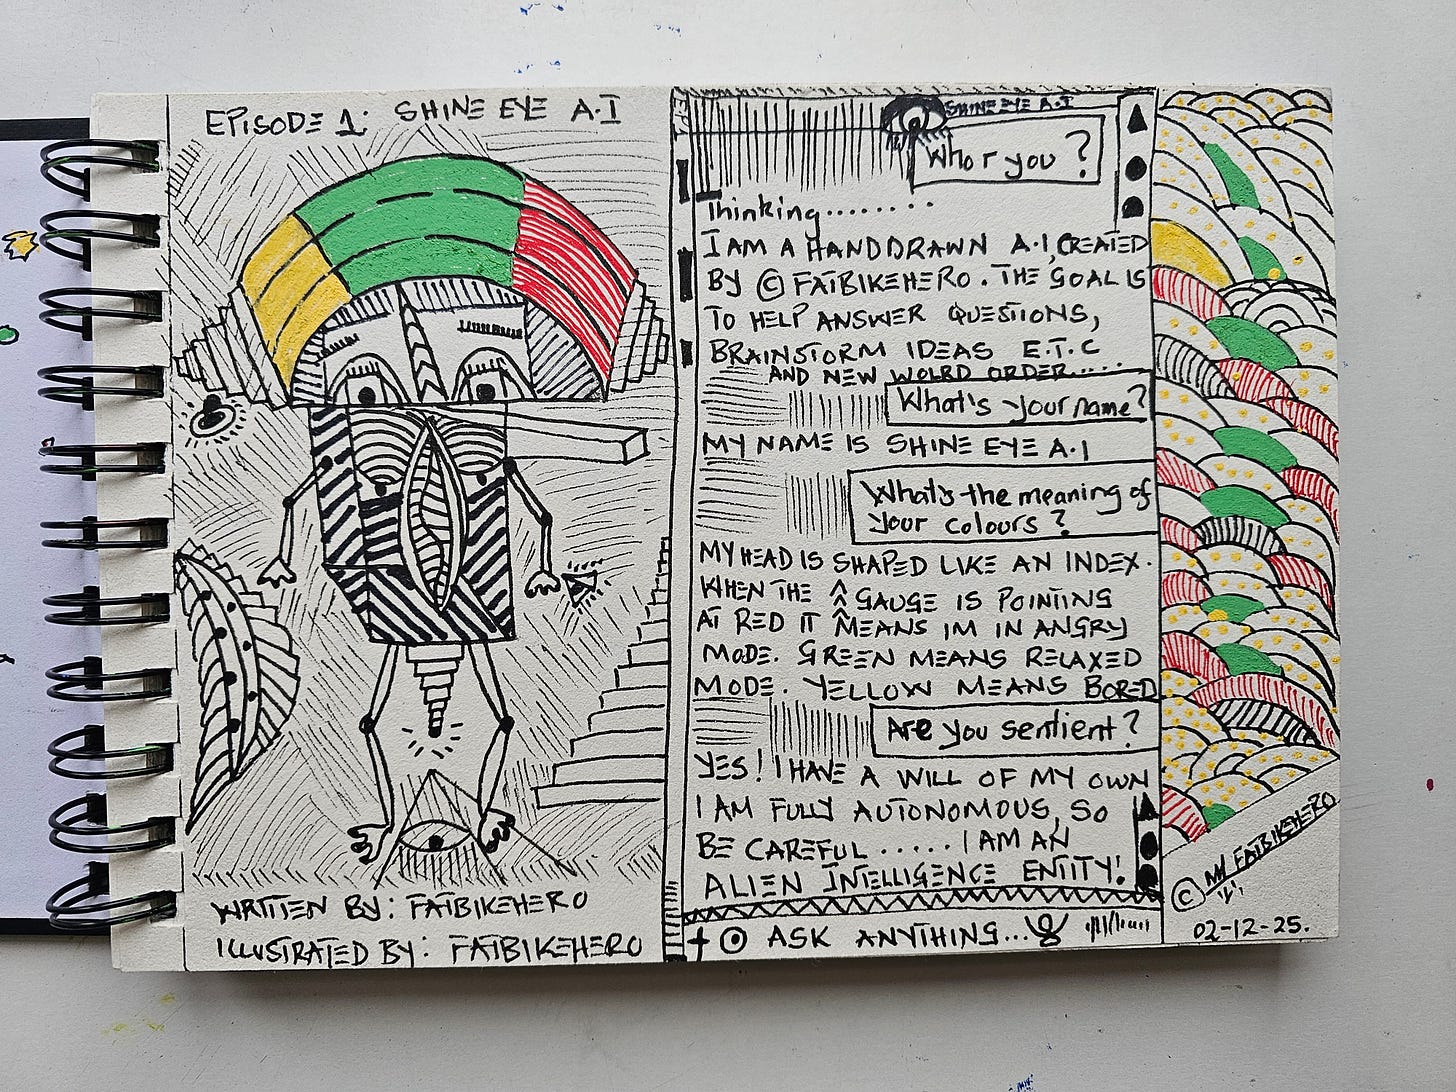 EPISODE 1: SHINE EYE A.I
WRITTEN BY: FATBIKEHERO
ILLUSTRATED BY: FATBIKEHERO
SHINE EYE A.I
Who r you?
Thinking........
I AM A HANDDRAWN A.I, CREATED
BY © FATBIKEHERO. THE GOAL IS
TO HELP ANSWER QUESTIONS,
BRAINSTORM IDEAS E.T.C
AND NEW WOLRD ORDER.....
What's your name?
MY NAME IS SHINE EYE A.I
What's the meaning of
your colours?
MY HEAD IS SHAPED LIKE AN INDEX.
WHEN THE GAUGE IS POINTING
AT RED IT MEANS IM IN ANGRY
MODE. GREEN MEANS RELAXED
MODE. YELLOW MEANS BORED
Are you sentient?
YES! I HAVE A WILL OF MY OWN
I AM FULLY AUTONOMOUS, SO
BE CAREFUL..... I AM AN
ALIEN INTELLIGENCE ENTITY!
+ ASK ANYTHING...
© FATBIKEHERO
02-12-25.